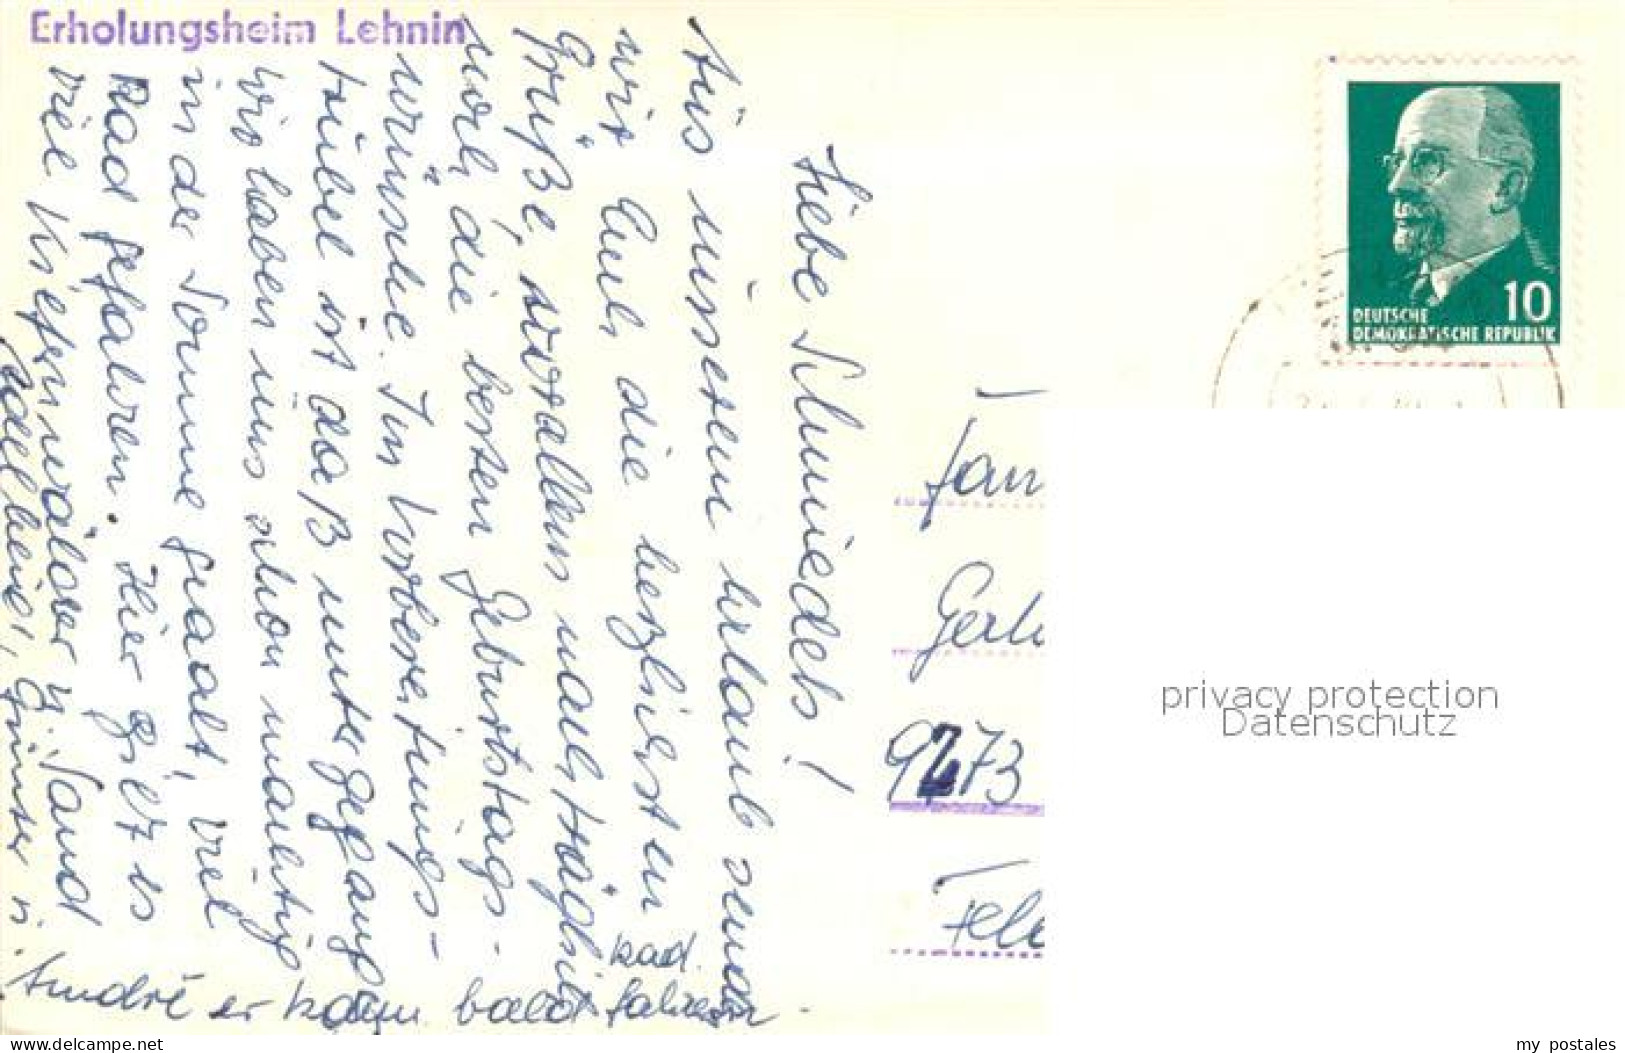 Erholungsheim Lehnin
Liebe Schmiedels!
Aus unserem Urlaub senden
wir Euch die herzlichsten
Grüße, vor allem nachträglich
noch die besten Geburtstags-
wünsche. Im Vorbereitungs-
trubel ist das
wir haben uns schon mächtig
in der Sonne geaalt, viel
Rad gefahren. Hier gibt es
viel Kiefernwälder u. Sand
Adelheid, Günter u.
André er kann bald Rad
fahren
DEUTSCHE
DEMOKRATISCHE REPUBLIK
10
Fam
Gerh
9273
privacy protection
Datenschutz
www.delcampe.net
my_postales